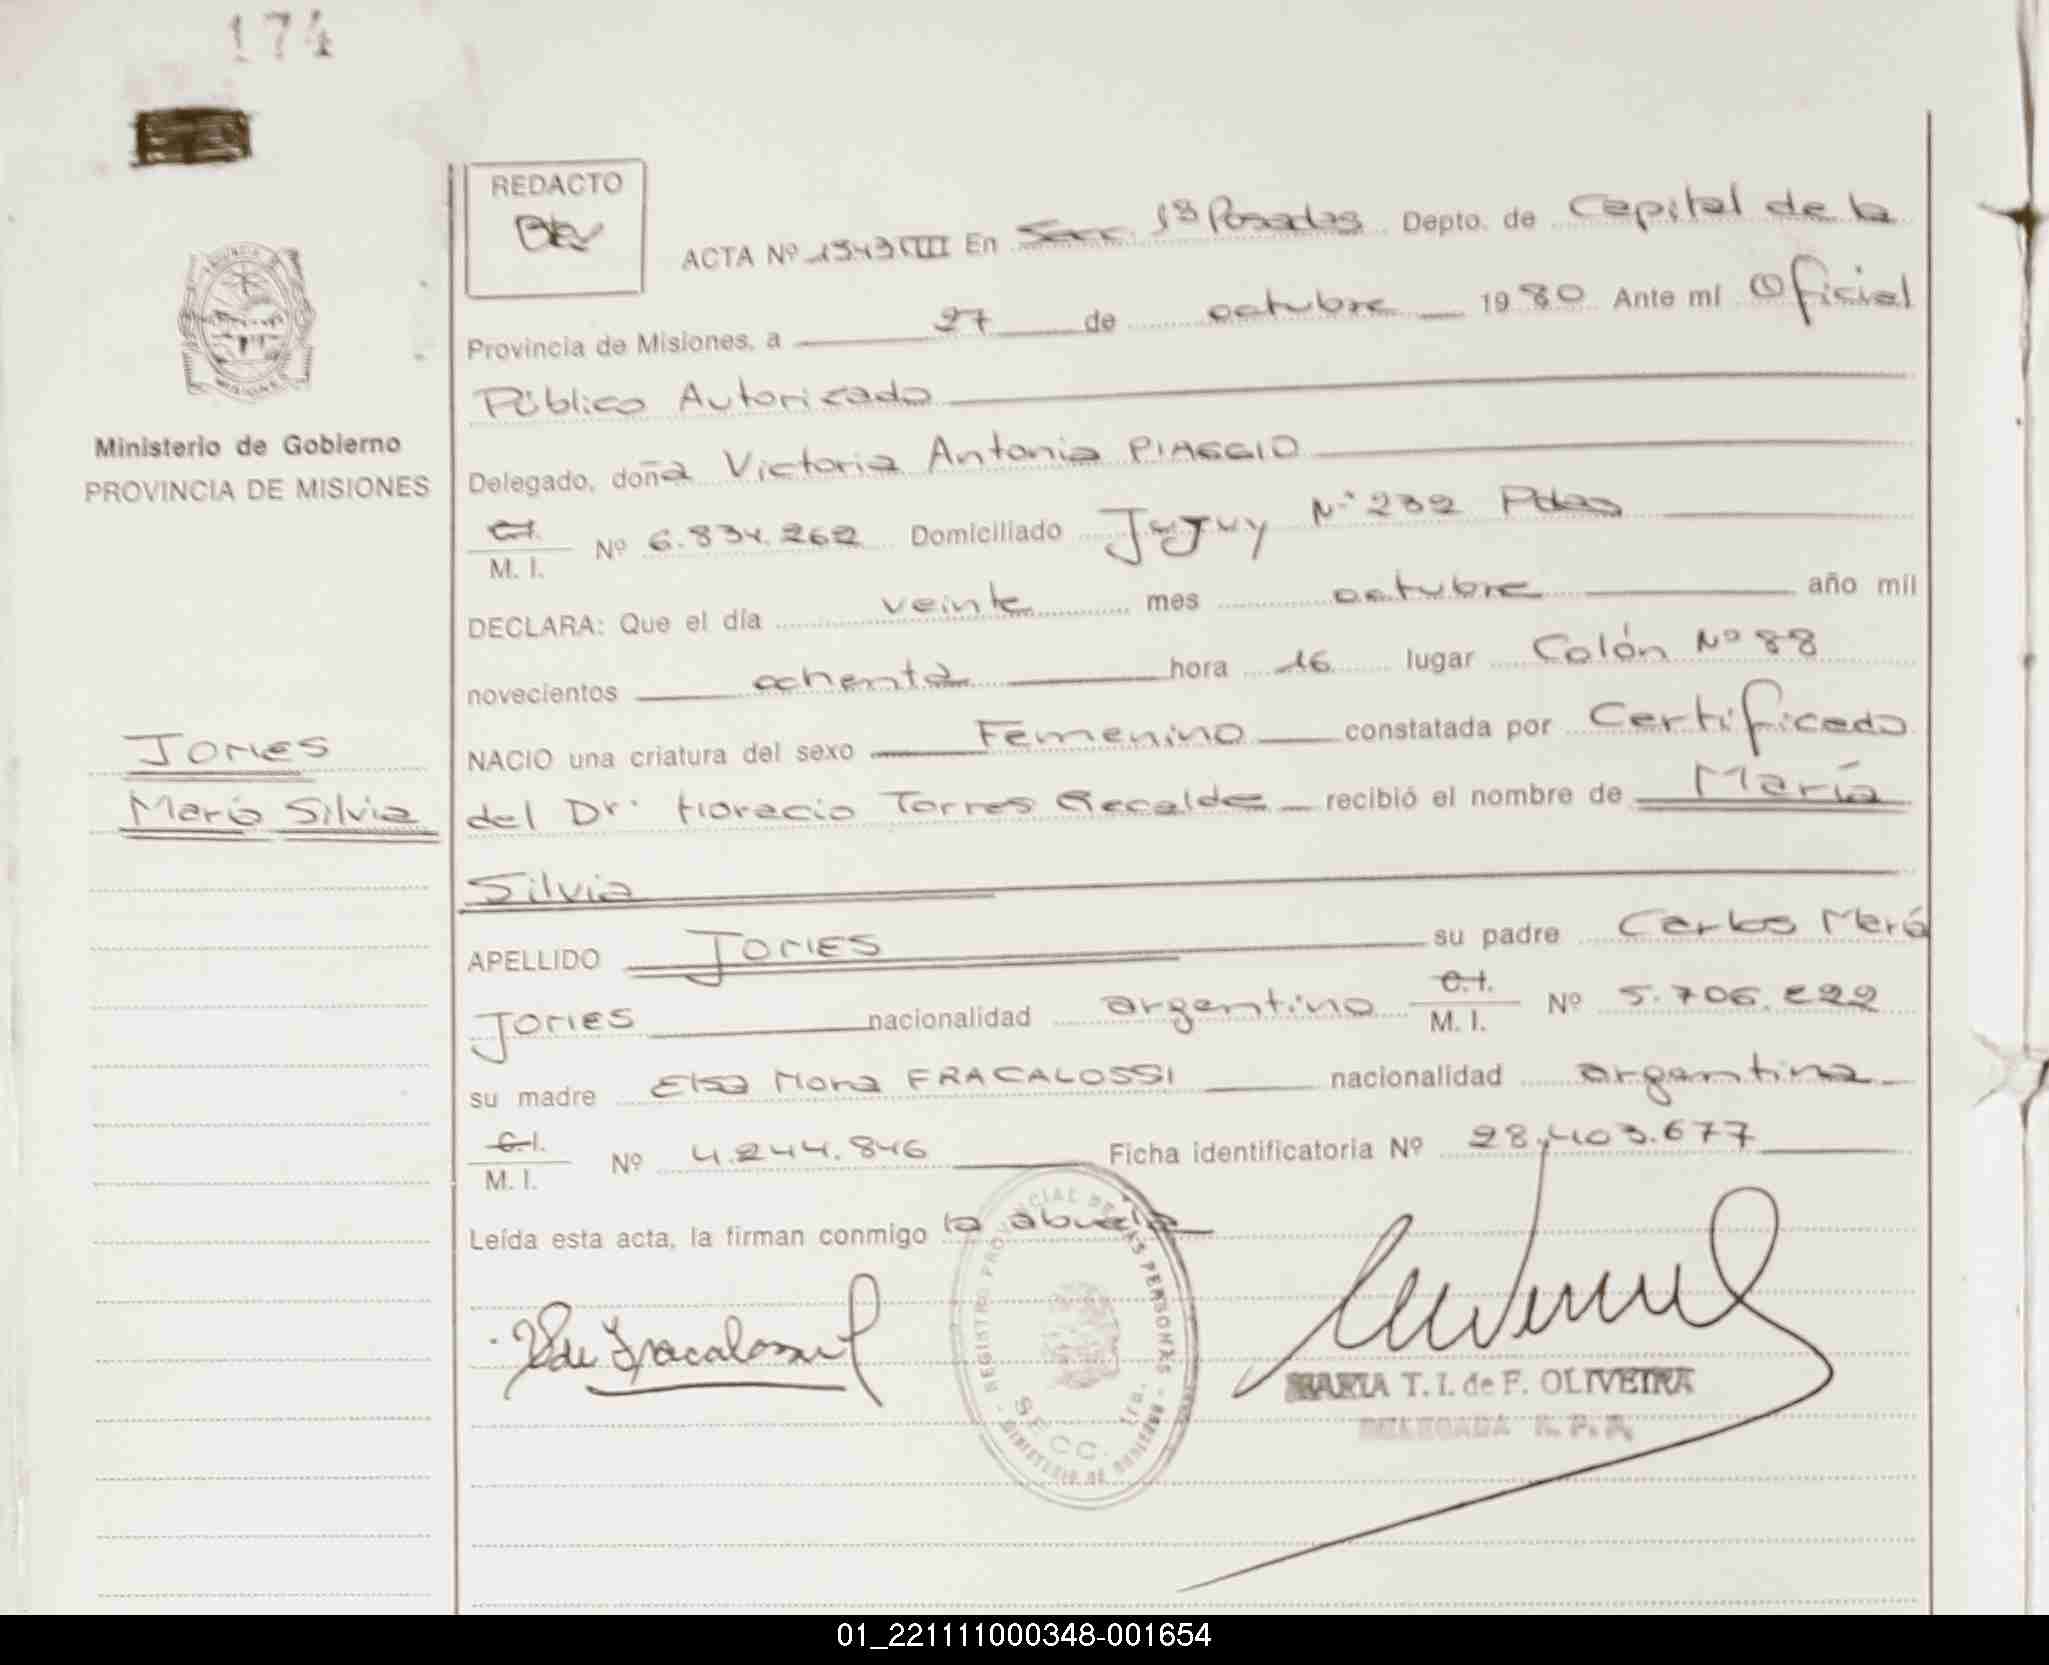 174
REDACTO
ACTA Nº 1343 VIII En Secc. 1ª Posadas Depto. de Capital de la
Provincia de Misiones, a 27 de octubre 1980 Ante mí Oficial
Público Autorizado
Ministerio de Gobierno
PROVINCIA DE MISIONES
Delegado, doña Victoria Antonia PIAGGIO
C.I.
M. I. Nº 6.834.262 Domiciliado Jujuy Nº 232 Pdas
DECLARA: Que el día veinte mes octubre año mil
novecientos ochenta hora 16 lugar Colón Nº 88
NACIO una criatura del sexo Femenino constatada por Certificado
Jones
María Silvia
del Dr. Horacio Torres Recalde recibió el nombre de María
Silvia
APELLIDO JONES su padre Carlos María
JONES nacionalidad argentino C.I.
M. I. Nº 5.706.222
su madre Elsa Nora FRACALOSSI nacionalidad argentina
C.I.
M. I. Nº 4.244.846 Ficha identificatoria Nº 28.403.677
Leída esta acta, la firman conmigo la abuela
de Fracalossi
REGISTRO PROVINCIAL DE LAS PERSONAS
MINISTERIO DE
SECC. 1ra.
MARIA T. I. de F. OLIVEIRA
DELEGADA R. P. P.
01_221111000348-001654